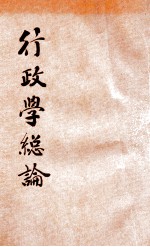 行政學総論